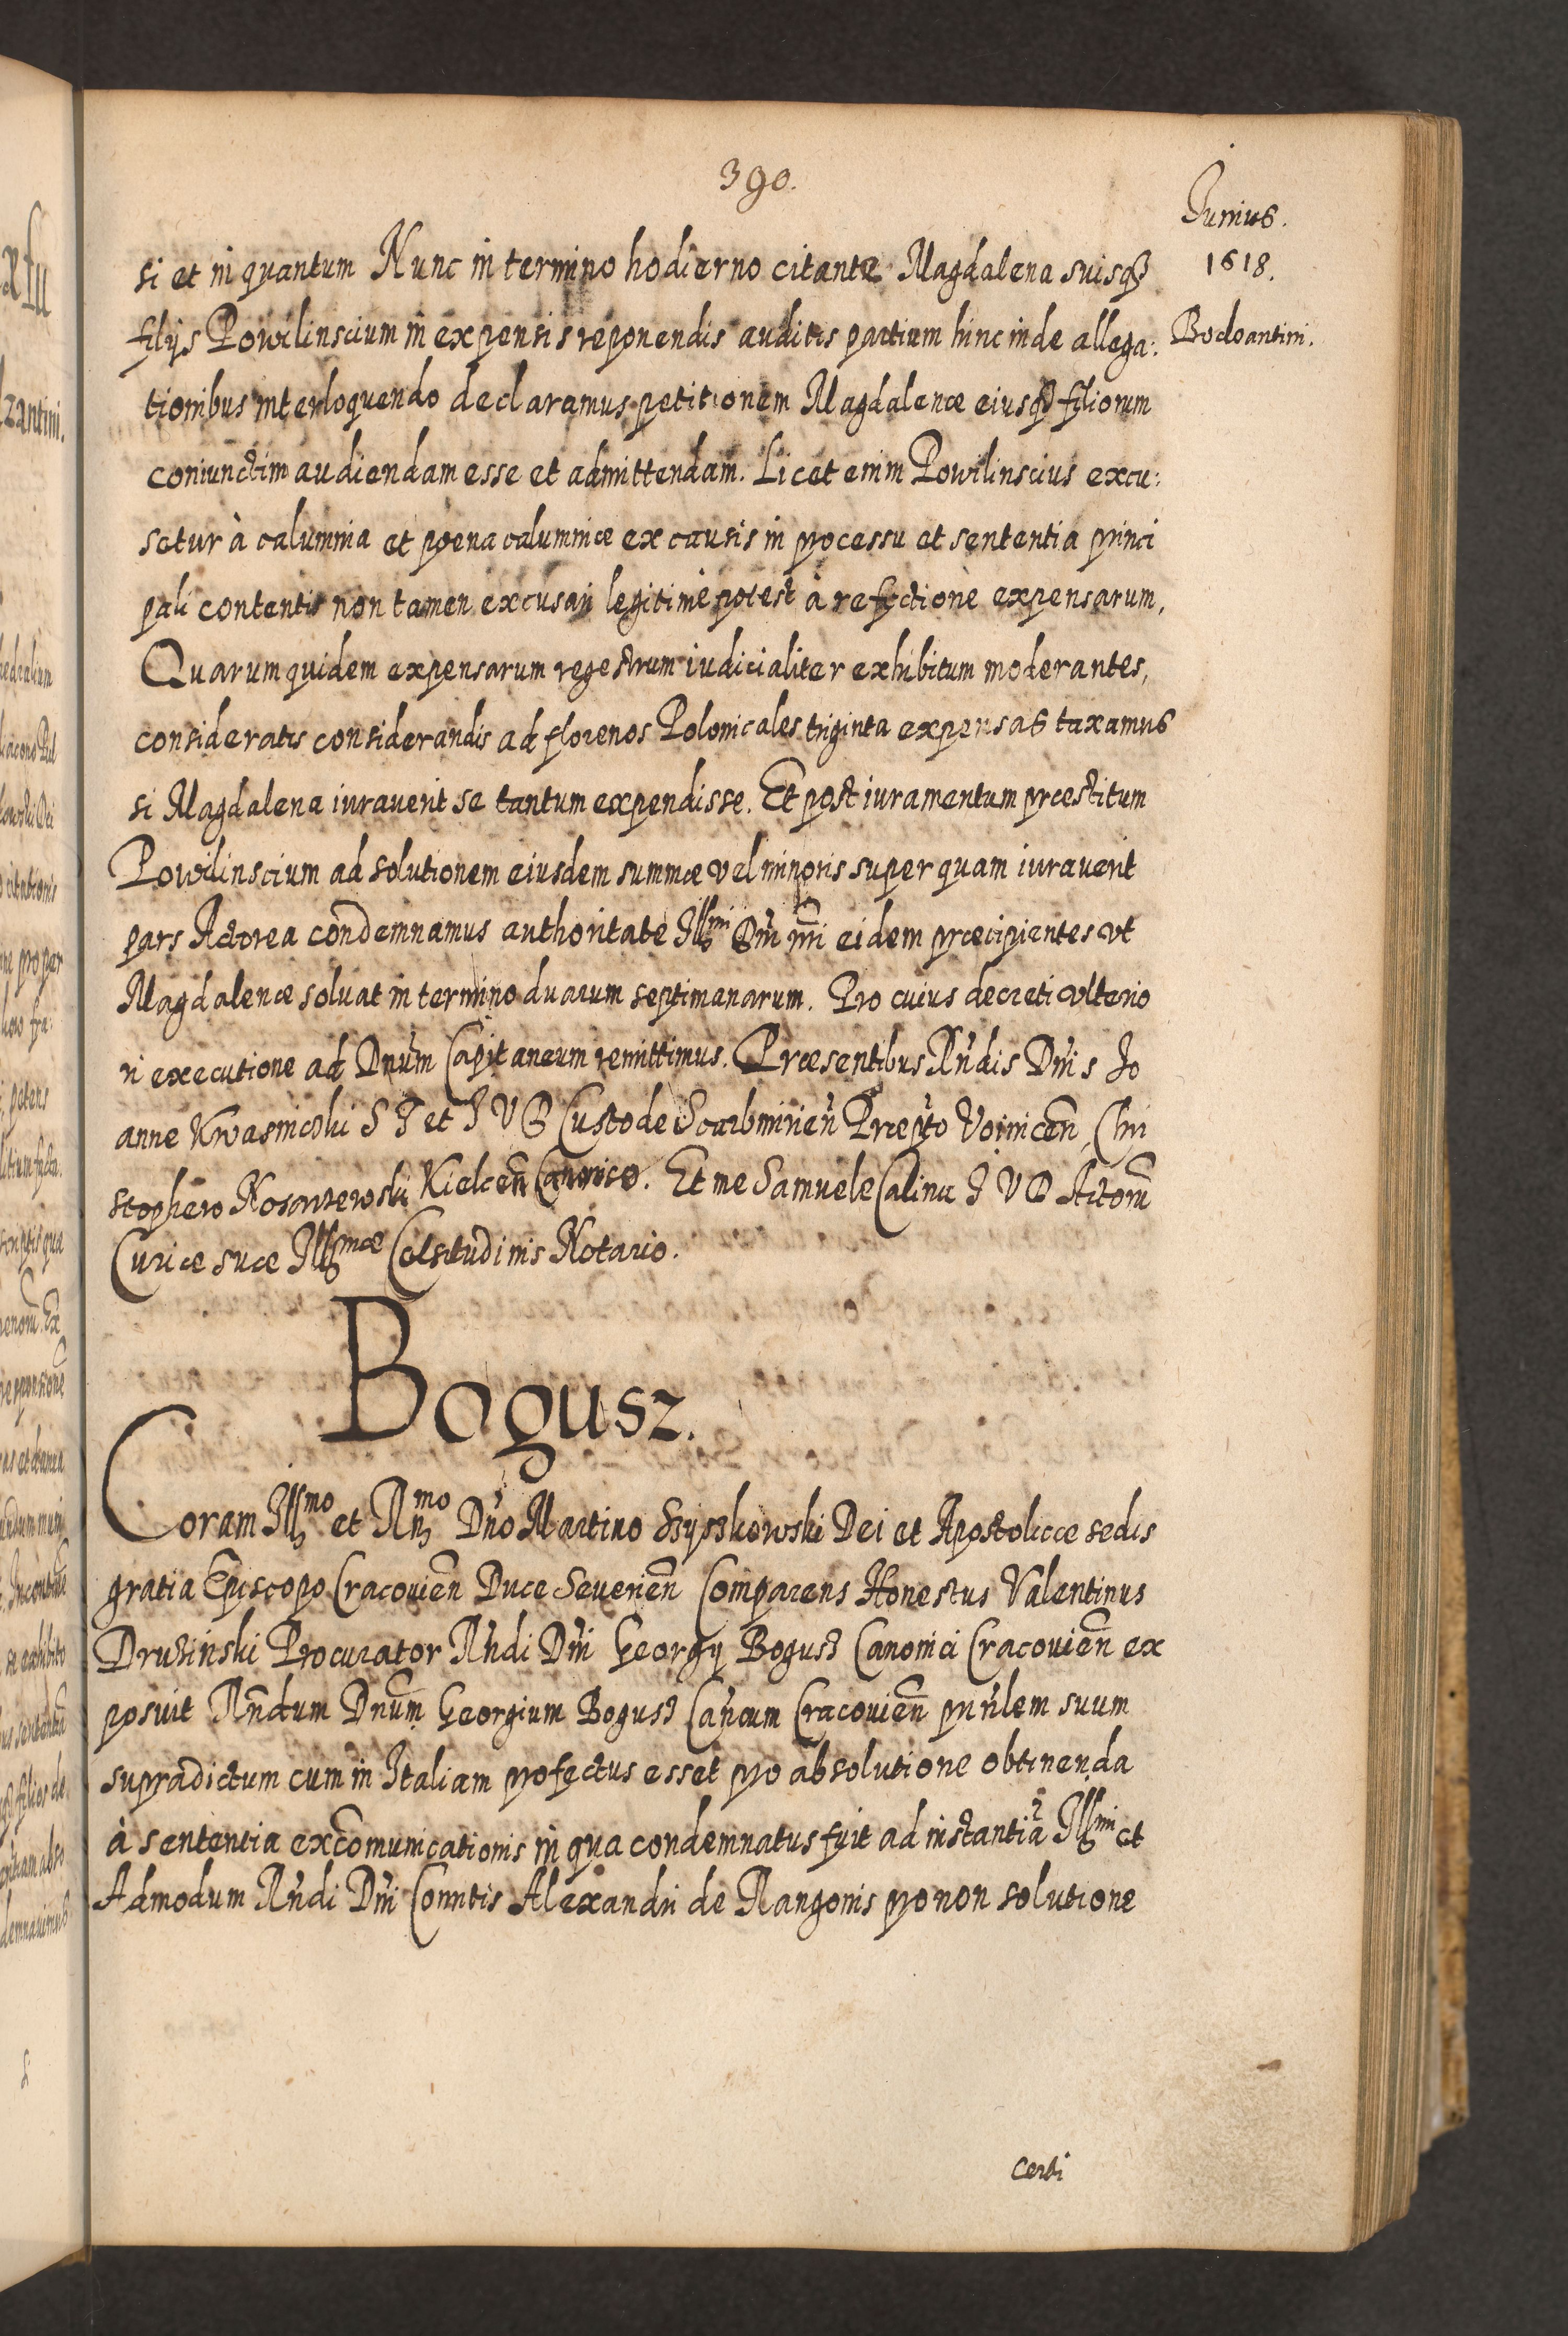 390.
Junius.
1618.
Bodzantini.
si et in quantum Nunc in termino hodierno citante Magdalena suisq3
filijs Powilinscium in expensis reponendis auditis partium hinc inde allega:
tionibus interloquendo declaramus petitionem Magdalenæ eiusq3 filiorum
coniunctim audiendam esse et admittendam. Licet enim Powilinscius excu:
setur à calumnia et poena calumniæ ex causis in processu et sententia princi
pali contentis non tamen excusari legitimè potest à refectione expensarum,
Quarum quidem expensarum regestrum iudicialiter exhibitum moderantes,
consideratis considerandis ad florenos Polonicales triginta expensas taxamus
si Magdalena iuraverit se tantum expendisse. Et post iuramentum præstitum
Powilinscium ad solutionem eiusdem summæ vel minoris super quam iuraverit
pars Actorea condemnamus authoritate Illmi Dni nri eidem præcipientes vt
Magdalenæ solvat in termino duarum septimanarum. Pro cuius decreti vlterio
ri executione ad Dnum Capitaneum remittimus. Præsentibus Rndis Dnis Jo
anne Kwasnicski S T et J V D Custode Scarbmirien Præpto Voinicen, Chri
stophero Kielcen Canonico. Et me Samuele Calinu J V D Actorū
Curiæ suæ Illmæ Celsitudinis Notario.
Bogusz.
Coram Illmo et Rmo Dno Martino Szyszkowski Dei et Apostolicæ sedis
gratia Episcopo Cracovien Duce Severien Comparens Honestus Valentinus
Druzinski Procurator Rndi Dni Georgij Bogusz Canonici Cracovien ex
posuit Rndum Dnum Georgium Bogusz Cancum Cracovien prinlem suum
supradictum cum in Italiam profectus esset pro absolutione obtinenda
à sententia excomunicationis in qua condemnatus fuit ad instantiã Illmi et
Admodum Rndi Dni Comitis Alexandri de Rangonis pro non solutione
certi